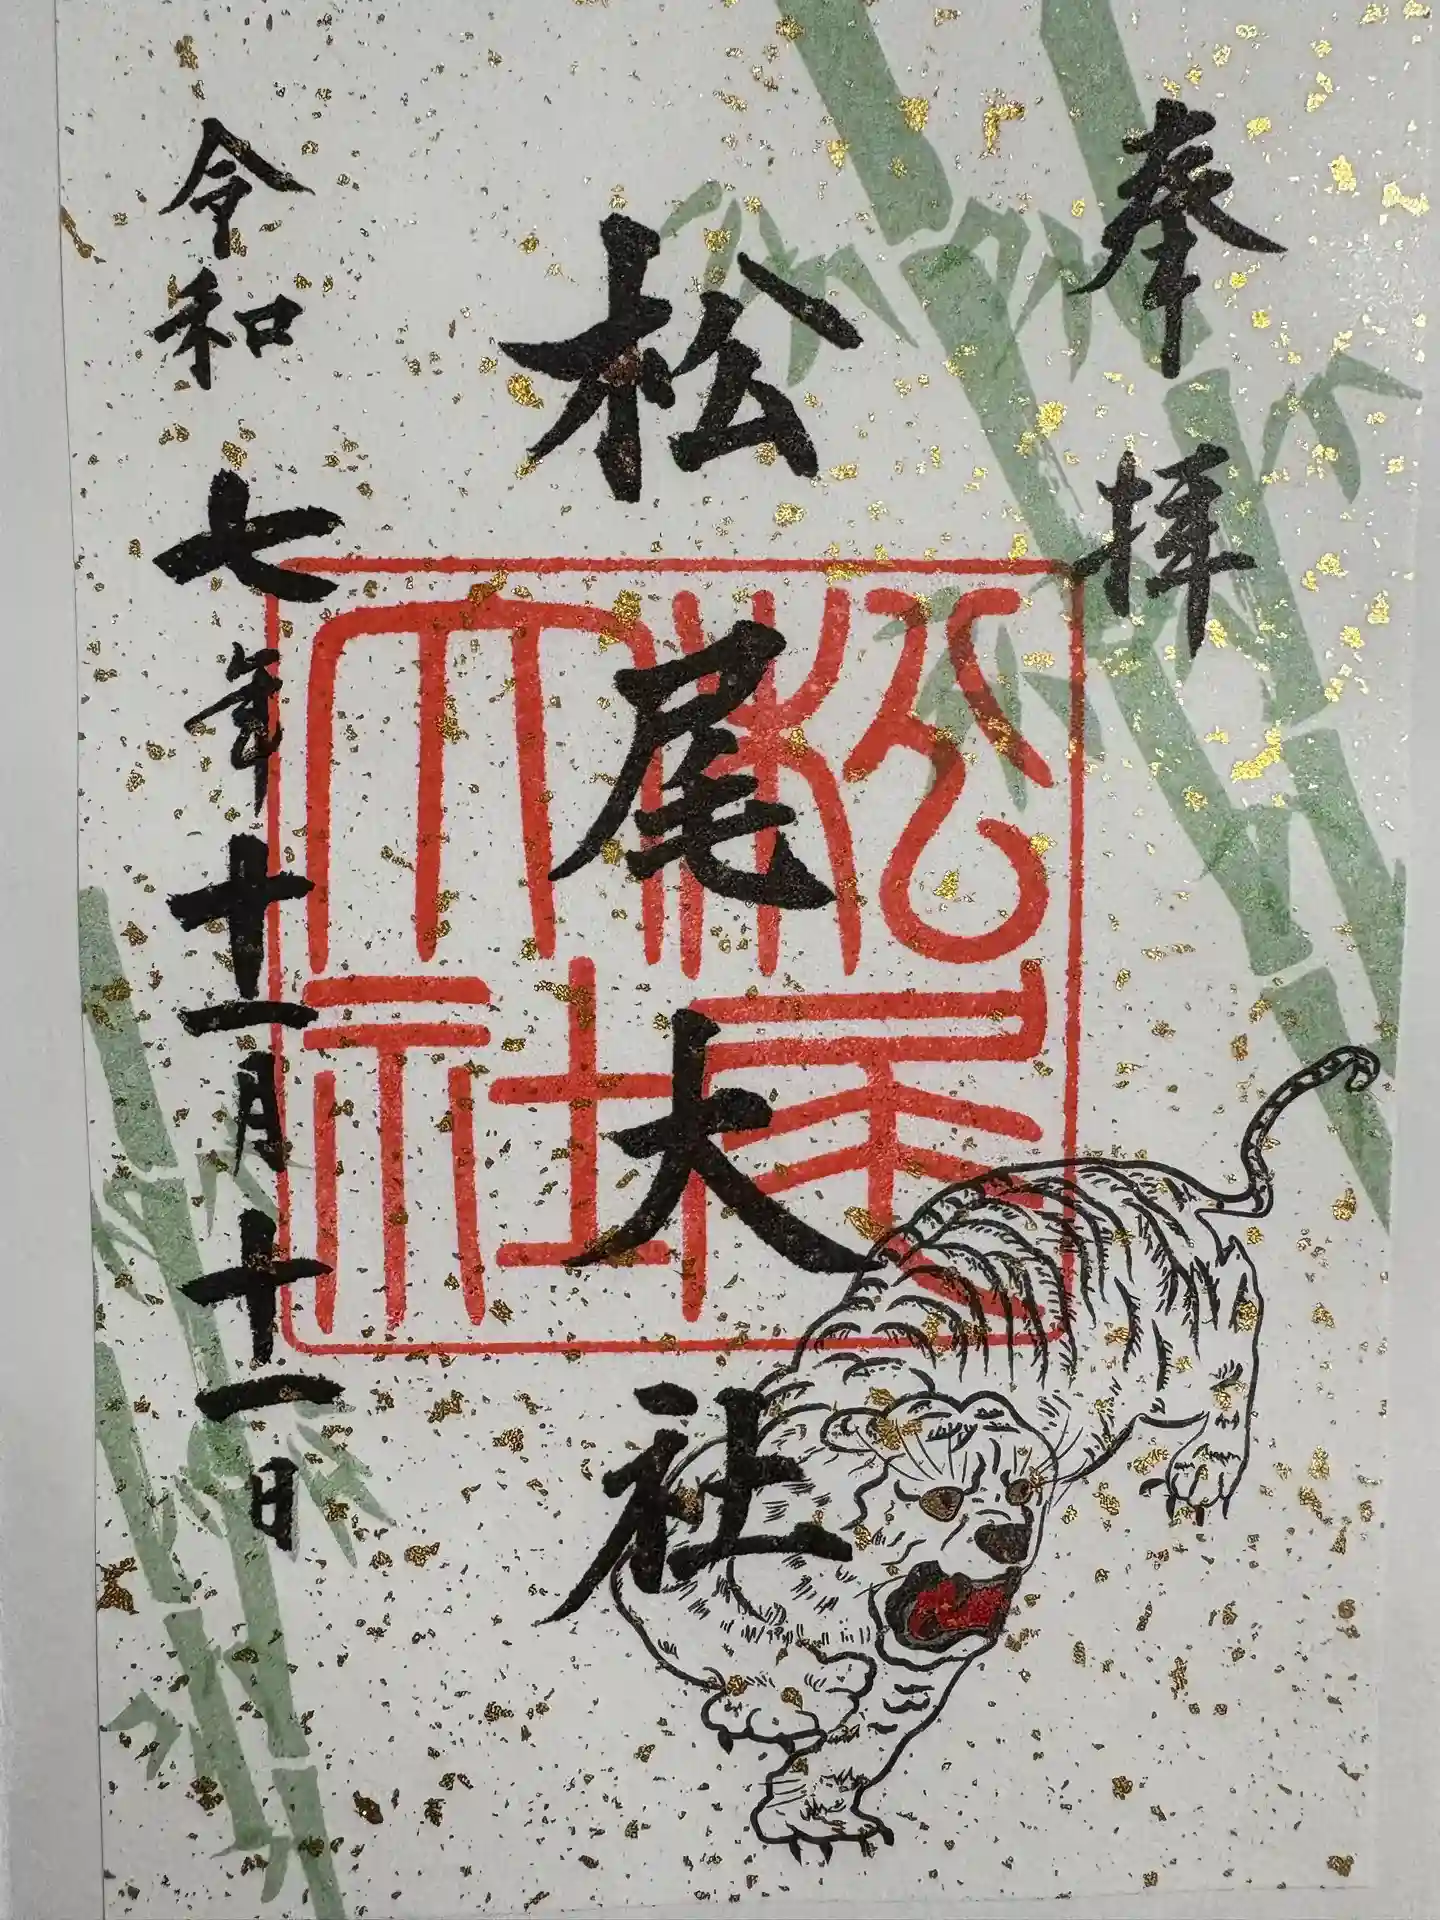 奉拝
松尾大社
松尾大社
令和七年十一月十一日